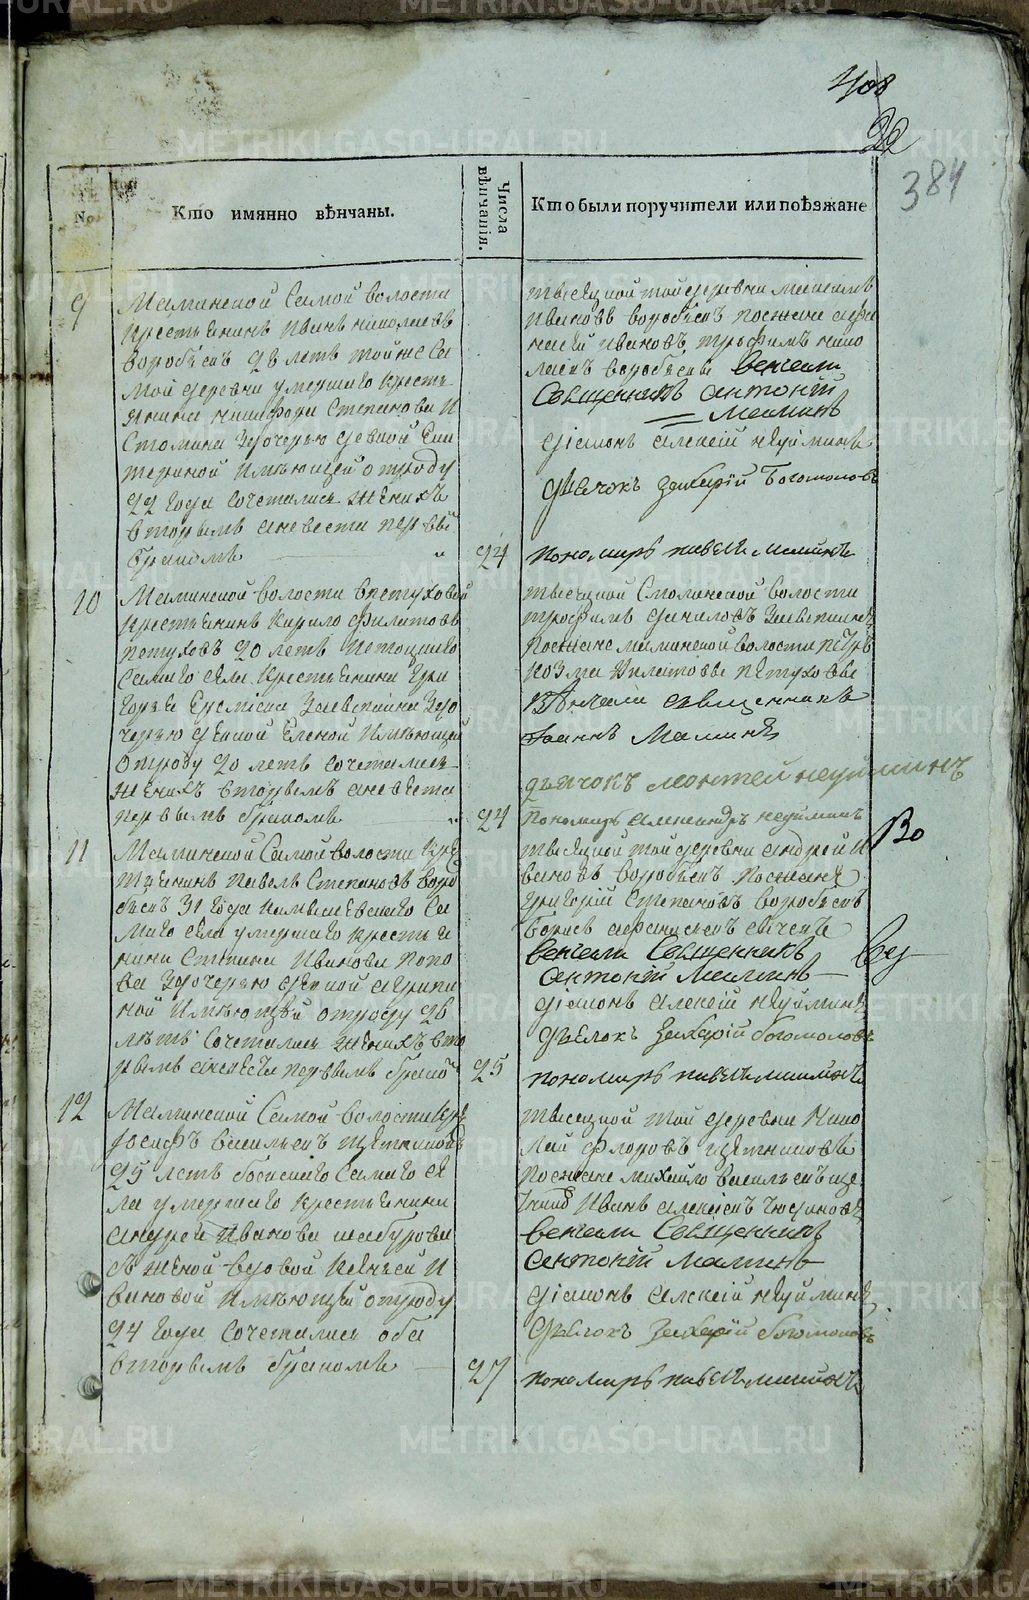 408
22
384
No
Кто имянно вѣнчаны.
Числа вѣнчанія.
Кто были поручители или поѣзжане
9
Маминской Самой волости
крестьянинъ Иванъ николаевъ
воробьевъ 28 летъ тойже Са
мой деревни умершаго кресть
янина никифора Степанова И
Стомина Здочерью девкой Ека
териной Имѣющей отроду
22 года сочетались женихъ
вторымъ аневеста первы
бракомъ
24
тысяцкой той деревни
Ивановъ воробьевъ поежане афа
насей Ивановъ трофимъ нико
лаевъ воробьевы венчали
Священникъ антоній
Маминъ
діаконъ алексій неуйминъ
дьячокъ Захарій Богомоловъ
пономарь павелъ маминъ
10
Маминской волости
крестьянинъ Кирило филатовъ
петуховъ 20 летъ
Самаго села крестьянина Гри
горья Здо
черью девкой Еленой Имѣющей
отроду 20 летъ сочетались
женихъ вторымъ аневеста
первымъ бракомъ
24
тысяцкой Смолинской волости
трофимъ даниловъ
Поежане маминской волости петръ
козма Филатовы петуховы
Вѣнчали священникъ
Іоаннъ Маминъ
дьячокъ неуйминъ
пономарь александръ неуйминъ
11
Маминской Самой волости кре
стьянинъ Павелъ Степановъ воро
бьевъ 31 года Камышевскаго Са
маго села умершаго крестья
нина Степана Иванова Попо
ва Здочерью девкой агрипи
ной Имѣющей отроду 26
летъ Сочетались женихъ вто
рымъ аневеста первымъ брако
25
тысяцкой той деревни андрей И
вановъ воробьевъ Поежане
григорій Степановъ воробьевъ
Борисъ
венчали Священникъ
антоній Маминъ
діаконъ алексій неуйминъ
дьячокъ Захарій богомоловъ
пономарь павелъ маминъ
Во
12
Маминской Самой волости кре
Іосифъ васильевъ
25 летъ Самаго се
ла умершаго крестьянина
андрея Иванова шабурова
съ женой вдовой И
вановой Имѣющей отроду
24 года сочетались оба
вторымъ бракомъ
27
тысяцкой той деревни Нико
лай флоровъ
Поежане михайло васильевъ ще
Иванъ алексіевъ
венчали Священникъ
антоній Маминъ
діаконъ алексій неуйминъ
дьячокъ Захарій богомоловъ
пономарь павелъ маминъ
METRIKI.GASO-URAL.RU